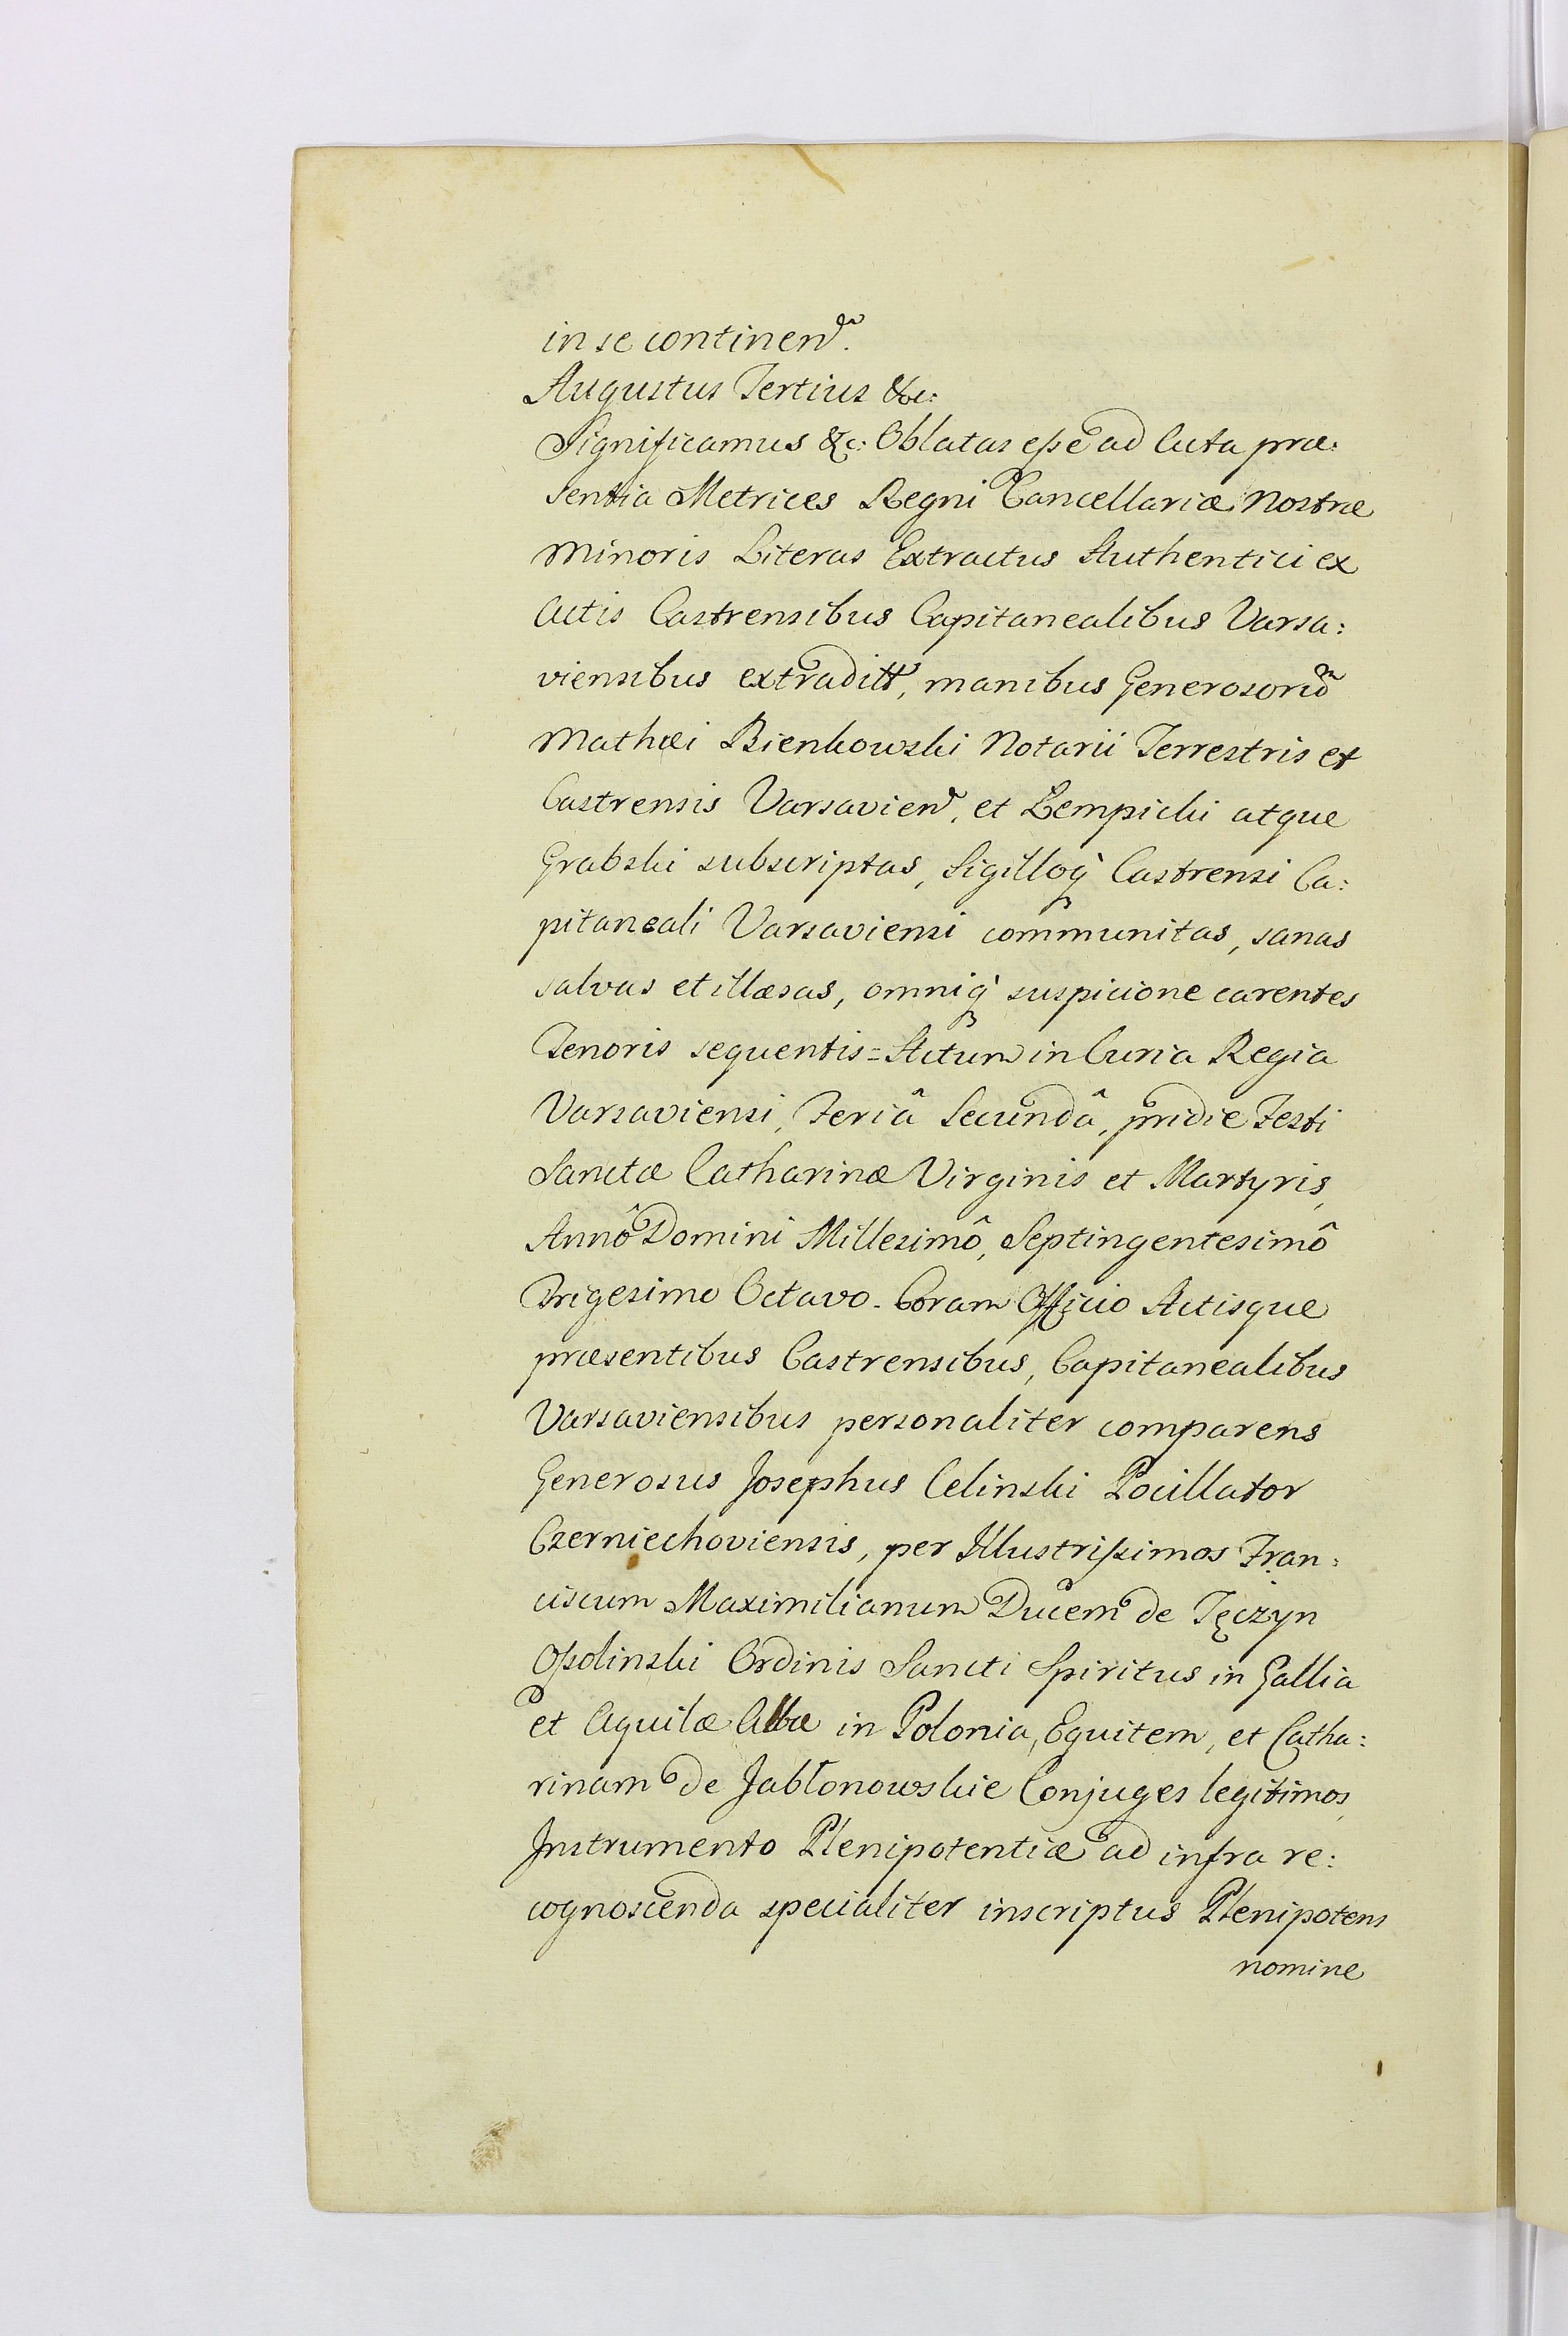 in se continen.
Augustus Tertius &c:
Significamus &c: Oblatas eße ad Acta præ:
sentia Metrices Regni Cancellariæ Nostræ
Minoris Literas Extractus Authentici ex
Actis Castrensibus Capitanealibus Varsa:
viensibus extraditt, manibus Generosorũ
Mathæi Bienkowski Notarii Terrestris et
Castrensis Varsavien, et Lempicki atque
Grabski subscriptas, Sigilloq̀ Castrensi Ca:
pitaneali Varsaviensi communitas, sanas
salvas et illæsas, omniq̀ suspicione carentes
Tenoris sequentis = Actum in Curia Regia
Varsaviensi, Feriâ Secundâ, pridie Festi
Sanctæ Catharinæ Virginis et Martyris,
Annô Domini Millesimô, Septingentesimô
Trigesimo Octavo. Coram Officio Actisque
præsentibus Castrensibus, Capitanealibus
Varsaviensibus personaliter comparens
Generosus Josephus Celinski Pocillator
Czerniechoviensis, per Illustrißimos Fran:
ciscum Maximilianum Ducem de Tęczyn
Oßolinski Ordinis Sancti Spiritus in Gallia
et Aquilæ Albæ in Polonia, Equitem, et Catha:
rinam de Jabłonowskie Conjuges legitimos,
Instrumento Plenipotentiæ ad infra re:
cognoscenda specialiter inscriptus Plenipotens
nomine